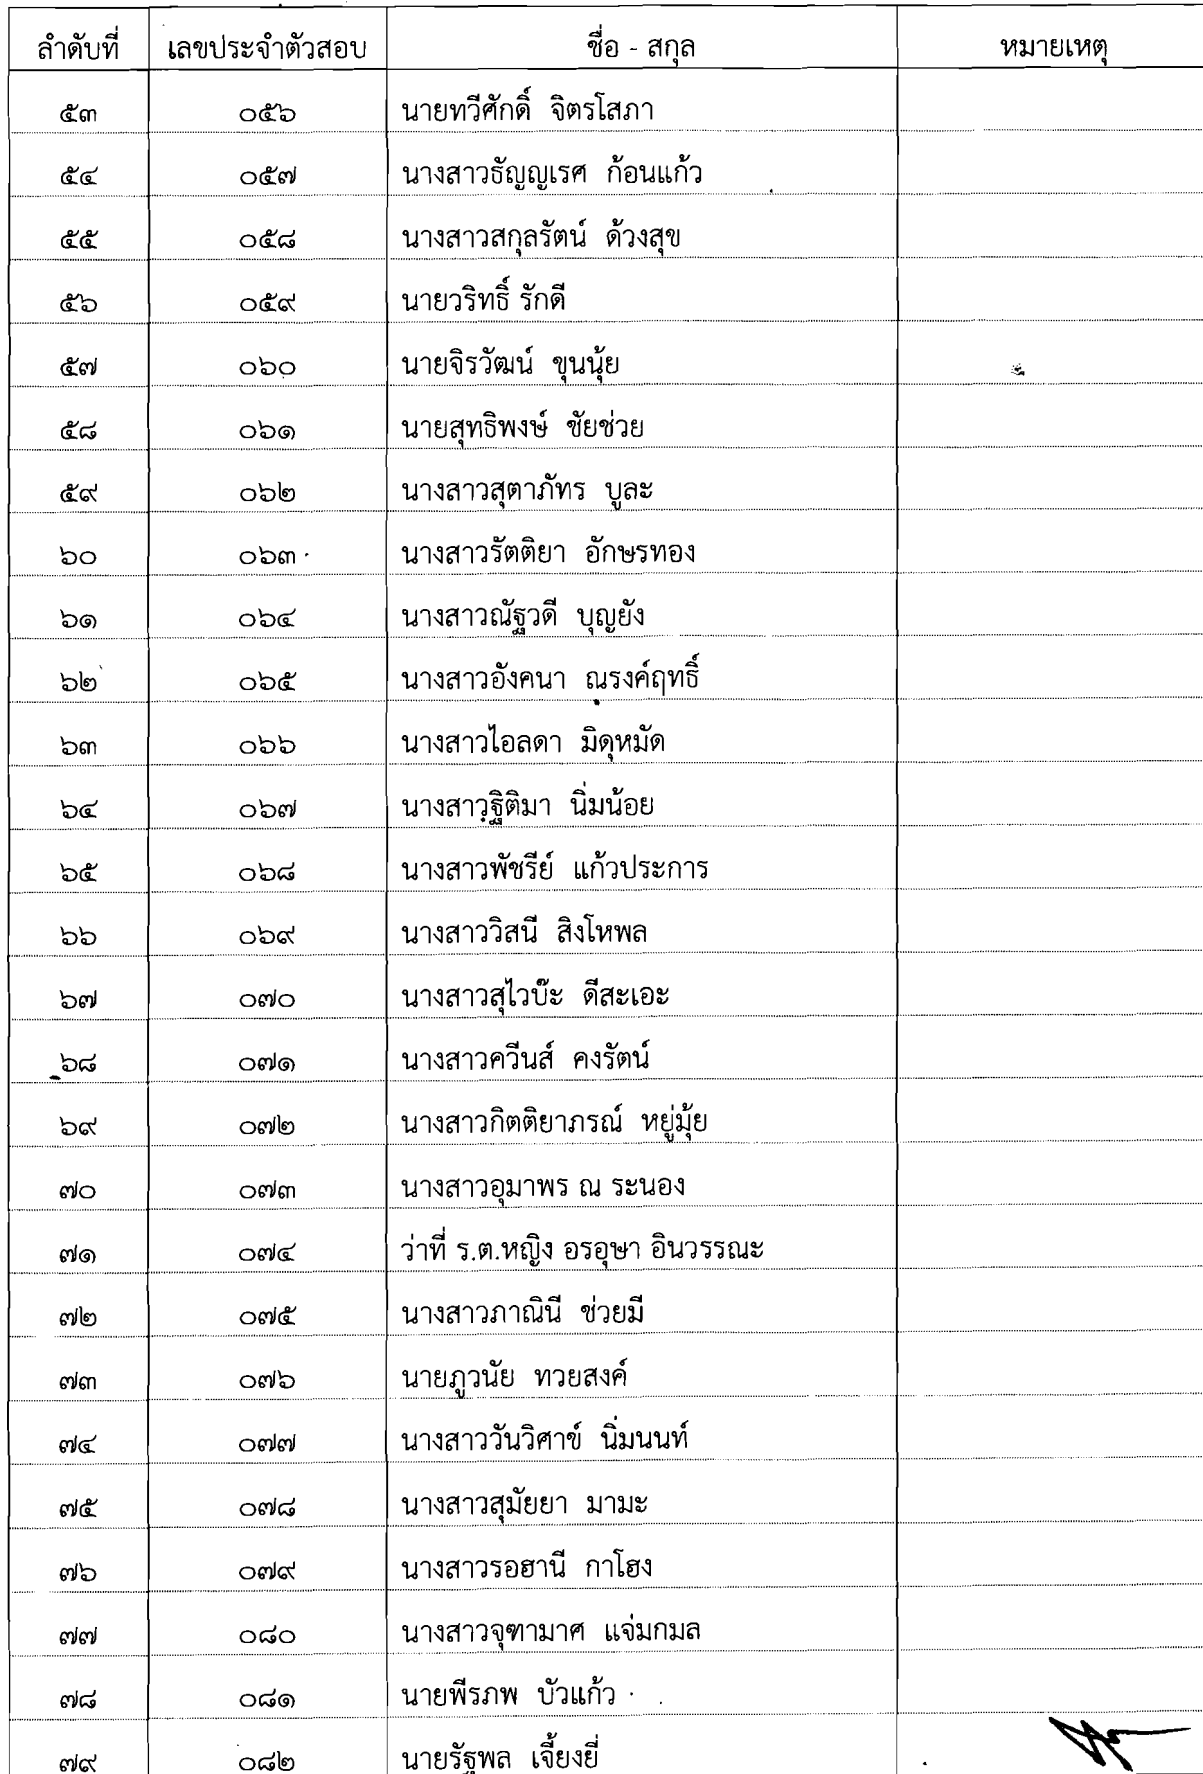 ลำดับที่ เลขประจำตัวสอบ ชื่อ - สกุล หมายเหตุ
๕๓ ๐๕๖ นายทวีศักดิ์ จิตรโสภา
๕๔ ๐๕๗ นางสาวธัญญเรศ ก้อนแก้ว
๕๕ ๐๕๘ นางสาวสกุลรัตน์ ด้วงสุข
๕๖ ๐๕๙ นายวริทธิ์ รักดี
๕๗ ๐๖๐ นายจิรวัฒน์ ขุนนุ้ย
๕๘ ๐๖๑ นายสุทธิพงษ์ ชัยช่วย
๕๙ ๐๖๒ นางสาวสุตาภัทร บูละ
๖๐ ๐๖๓ นางสาวรัตติยา อักษรทอง
๖๑ ๐๖๔ นางสาวณัฐวดี บุญยัง
๖๒ ๐๖๕ นางสาวอังคนา ณรงค์ฤทธิ์
๖๓ ๐๖๖ นางสาวไอลดา มิดุหมัด
๖๔ ๐๖๗ นางสาวฐิติมา นิ่มน้อย
๖๕ ๐๖๘ นางสาวพัชรีย์ แก้วประการ
๖๖ ๐๖๙ นางสาววิสนี สิงโหพล
๖๗ ๐๗๐ นางสาวสุไวบ๊ะ ดีสะเอะ
๖๘ ๐๗๑ นางสาวควีนส์ คงรัตน์
๖๙ ๐๗๒ นางสาวกิตติยาภรณ์ หยู่มุ้ย
๗๐ ๐๗๓ นางสาวอุมาพร ณ ระนอง
๗๑ ๐๗๔ ว่าที่ ร.ต.หญิง อรอุษา อินวรรณะ
๗๒ ๐๗๕ นางสาวภาณินี ช่วยมี
๗๓ ๐๗๖ นายภูวนัย ทวยสงค์
๗๔ ๐๗๗ นางสาววันวิศาข์ นิ่มนนท์
๗๕ ๐๗๘ นางสาวสุมัยยา มามะ
๗๖ ๐๗๙ นางสาวรอฮานี กาโฮง
๗๗ ๐๘๐ นางสาวจุฑามาศ แจ่มกมล
๗๘ ๐๘๑ นายพีรภพ บัวแก้ว
๗๙ ๐๘๒ นายรัฐพล เจี้ยงยี่